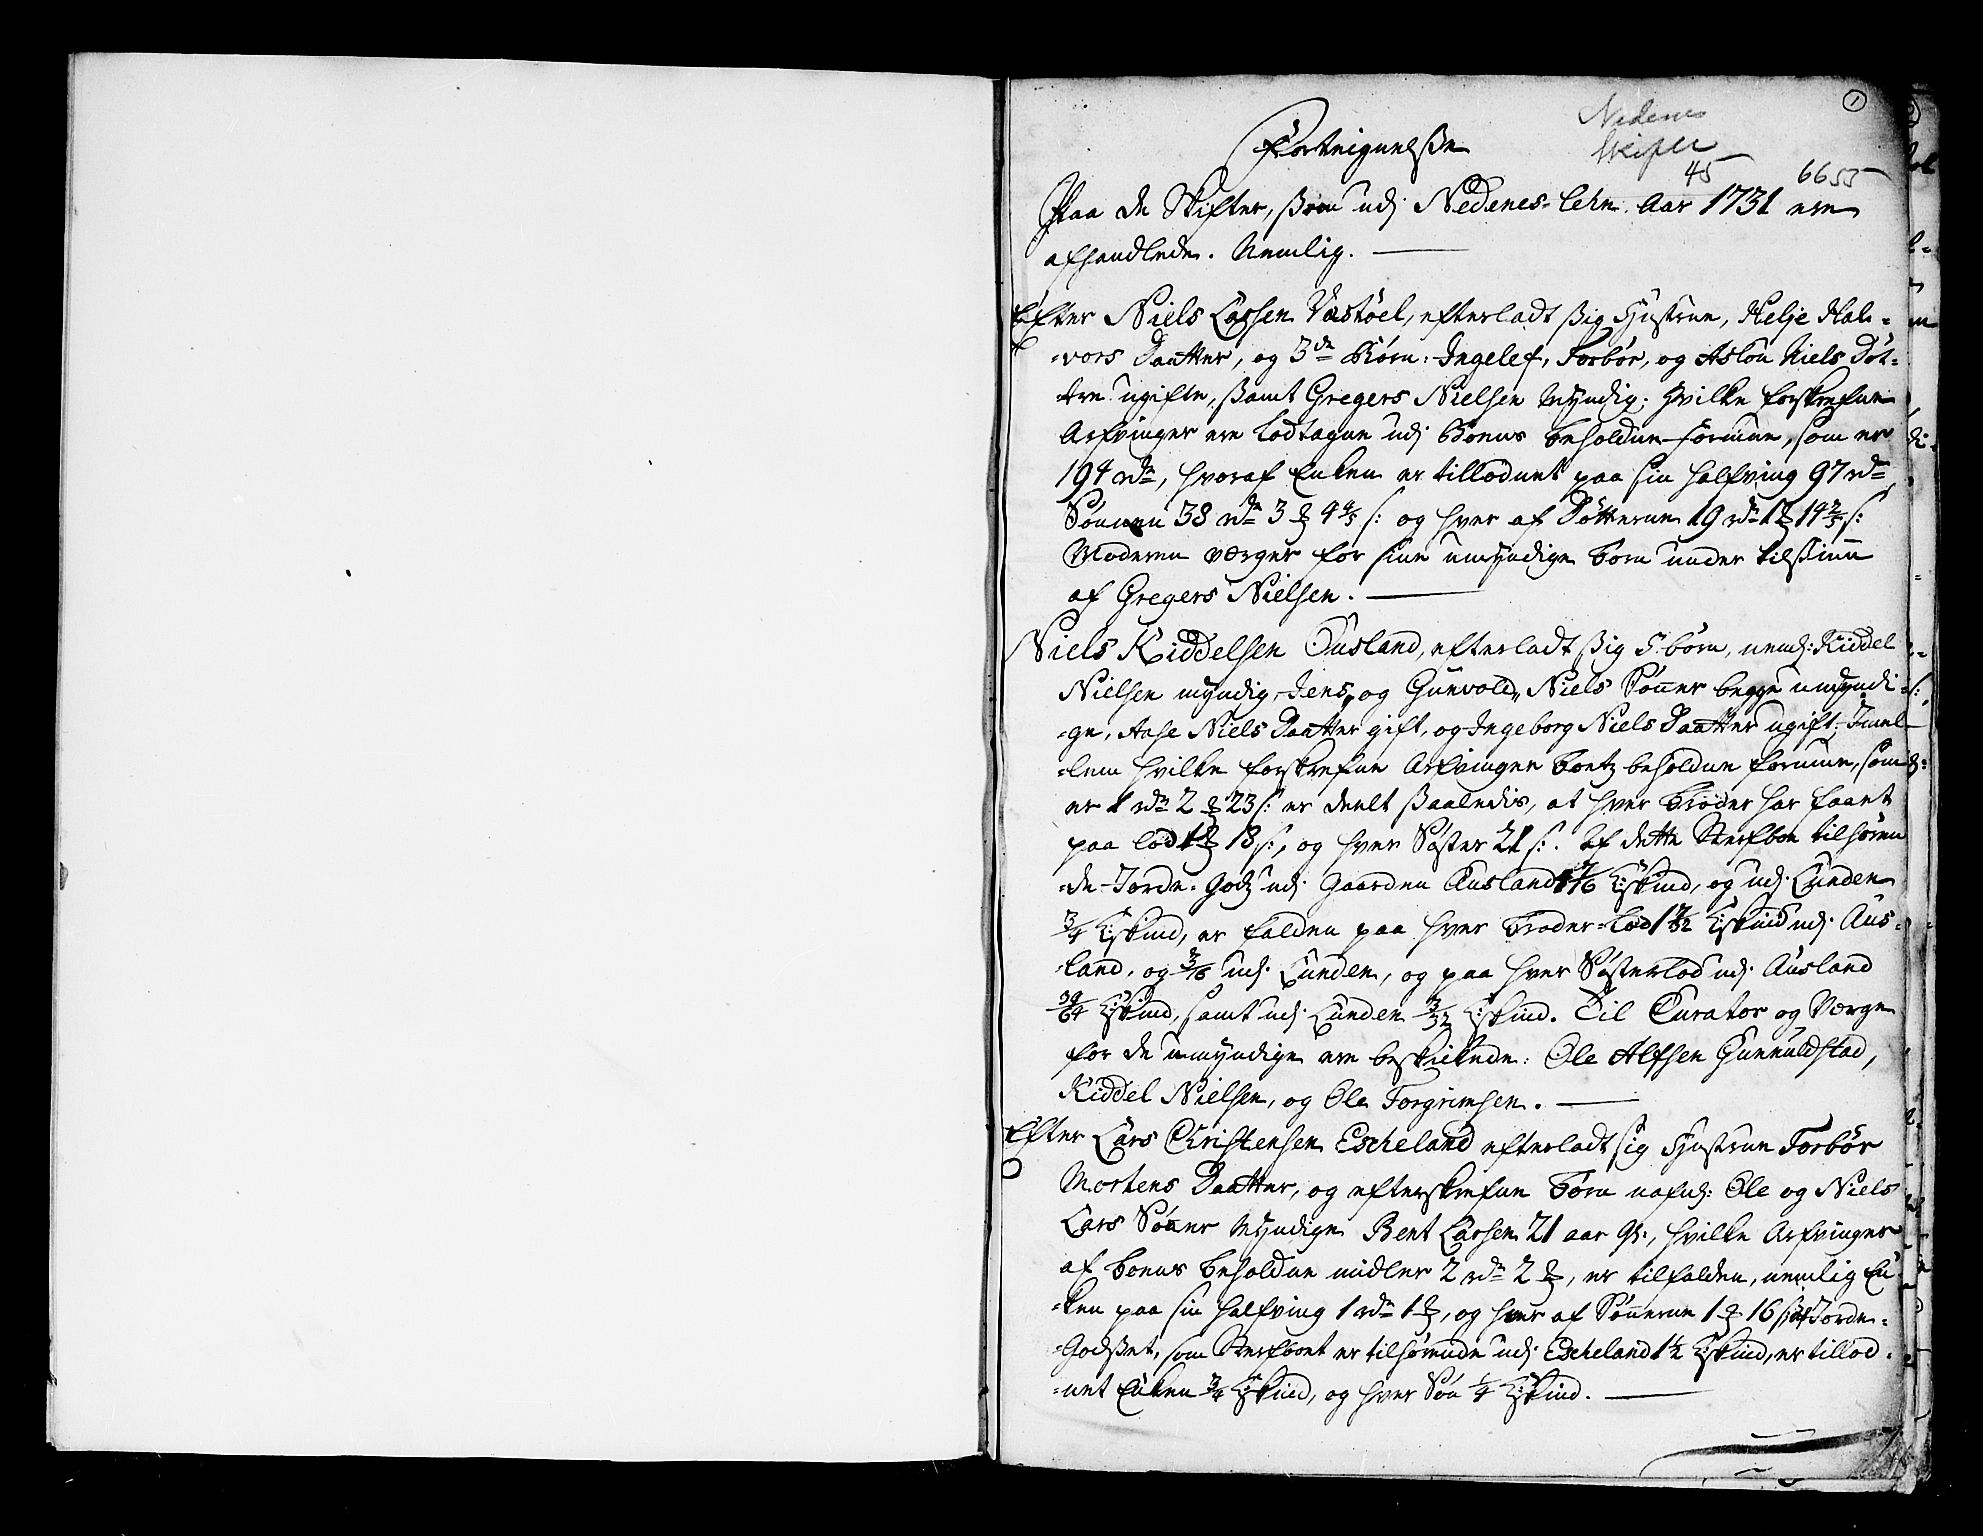 1
Nedenes
Skifter
45
6655
Forteignelsse
Paa de Skifter, ssom udj Nedenes-Lehn Aar 1731 ere
afhandlede. Nemlig.
Efter Niels Larsen Væstöel, efterladt ssig Hustrue, Helje Hal-
-vors Daatter, og 3de Börn: Ingelef, Torbör, og Aslou Niels Döt-
-tre ugifte, ssamt Gregers Nielsen Myndig; Hvilke forskrefne
Arfvinger ere lodtagne udj Boens beholdne formue, som er
194 rdr, hvoraf Enken er tillodnet paa sin halfving 97 rdr
Sönnen 38 rdr 3 ß 4 4/5 s: og hver af Döttrene 19 rdr 1 ß 14 2/5 s:
Moderen værger for sine umyndige born under tilssiun
af Gregers Nielsen.
Niels Kiddelsen Ousland, efterladt ssig 5 börn, neml: Kiddel
Nielsen myndig, Jens, og Gunvold, Niels Sönner begge umyndi-
-ge, Aase Niels Daatter gift, og Ingeborg Niels Daatter ugift; Imel-
-lem hvilke forskrefne Arfvinger Boetz beholdne formue, som
er 1 rdr 2 ß 23 s: er deelt ssaaledis, at hver Broder har faaet
paa lod 1 ß 18 s:, og hver Söster 21 s:. Af dette Sterfboe tilhören-
-de Jorde-Godtz udj Gaarden Ousland 4 7/16 Kskind, og udj Lunden
3/4 Kskind, er falden paa hver Broder-lod 1 7/32 Kskind udj Aus-
-land, og 3/16 udj Lunden, og paa hver Sösterlod udj Ausland
39/64 Kskind, samt udj Lunden 3/32 Kskind. Til Curator og Værge
for de umyndige ere beskikede: Ole Alfsen Gunnuldstad,
Kiddel Nielsen, og Ole Torgrimsen.
Efter Lars Christensen Escheland efterladt sig Hustrue Torbör
Mortens Daatter, og efterskrefne Börn nafnl: Ole og Niels
Lars Sönner Myndige Bent Larsen 21 aar gl:, hvilke Arfvinger
af boens beholdne midler 2 rdr 2 ß, er tilfalden, nemlig En-
-ken paa sin halfving 1 rdr 1 ß, og hver af Sönnerne 1 ß 16 s: af Jorde-
-Godsset, som Sterfboet er tilhörende udj Escheland 1 1/2 Kskind, er tillod-
-net Enken 3/4 Kskind, og hver Sön 1/4 Kskind.